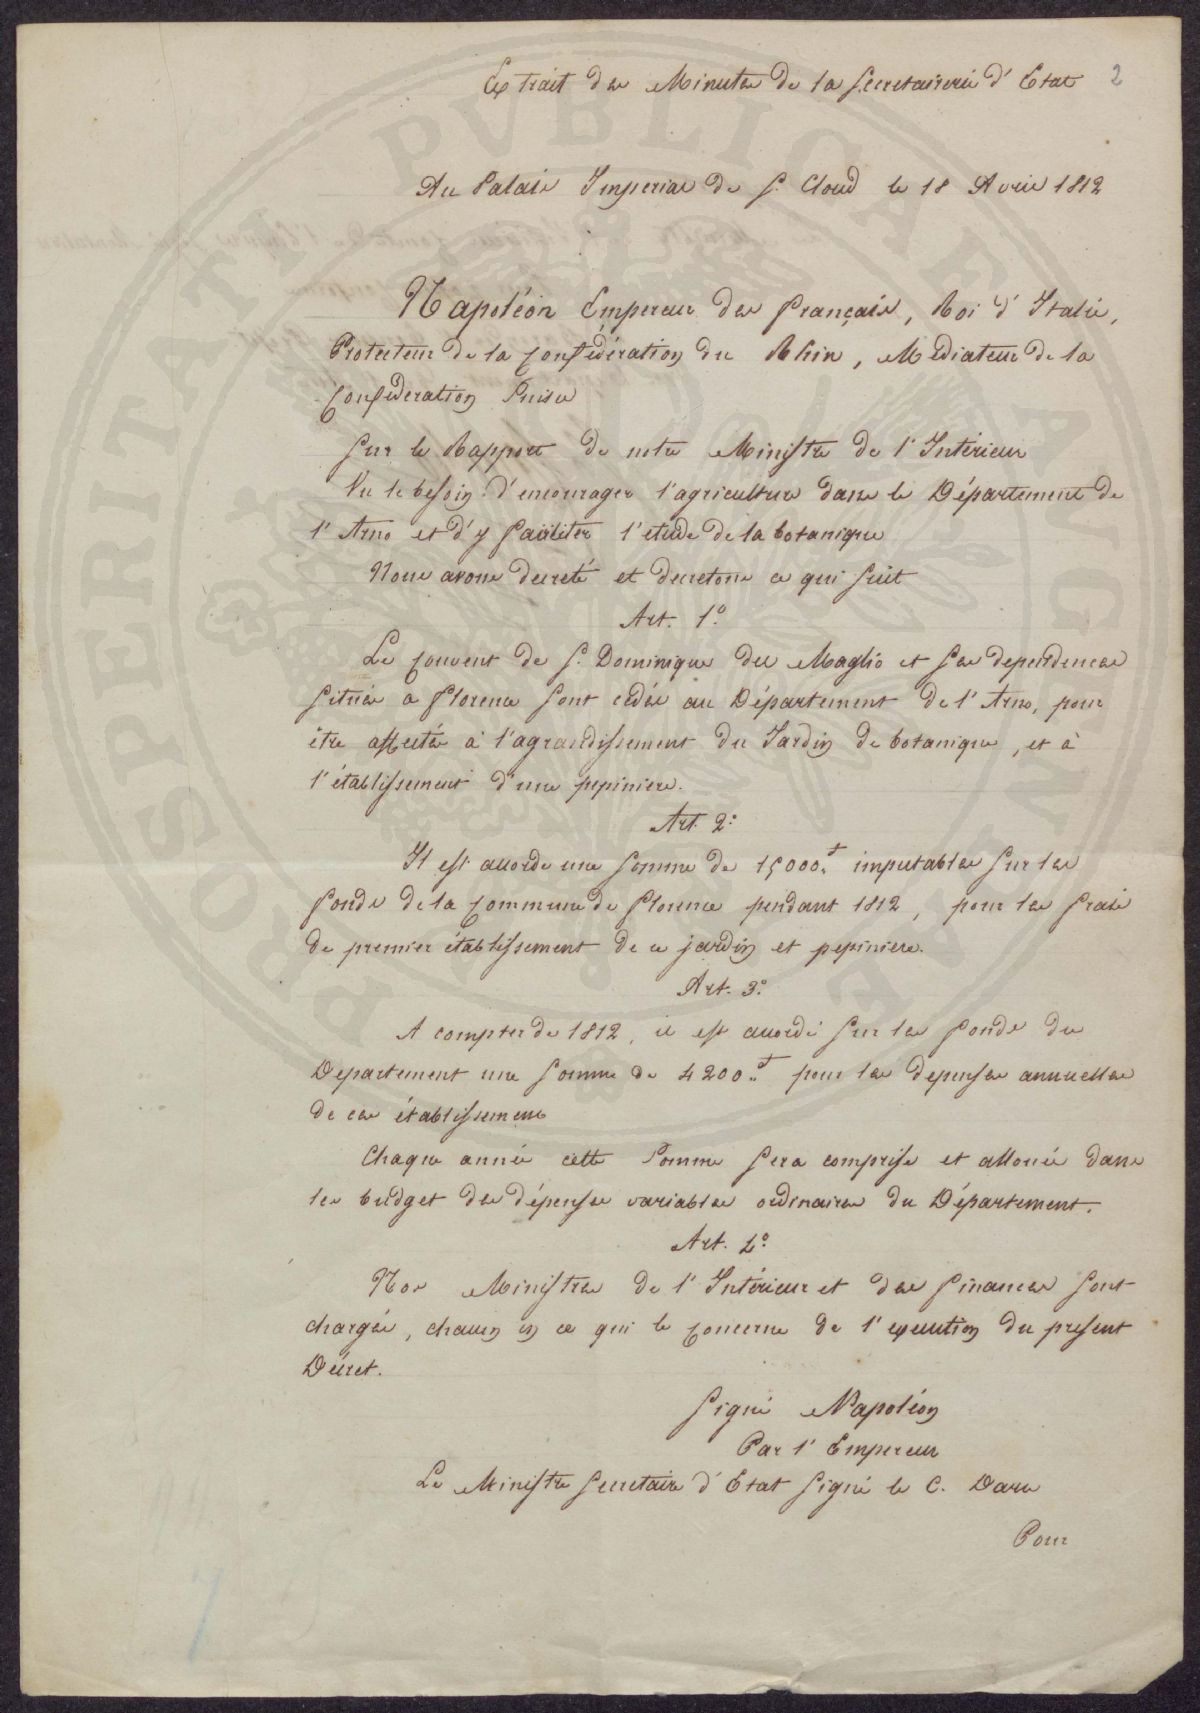 Extrait des Minutes de la Secretairerie d'Etat 2
Au Palais Imperial de St. Cloud le 18 Avril 1812
Napoléon Empereur des Français, Roi d'Italie,
Protecteur de la Confédération du Rhin, Médiateur de la
Confédération Suisse
Sur le Rapport de notre Ministre de l'Intérieur
Vu le besoin d'encourager l'agriculture dans le Département de
l'Arno et d'y faciliter l'etude de la botanique
Nous avons decreté et decretons ce qui suit
Art. 1º
Le Couvent de St. Dominique del Maglio et ses dependences
situés a Florence sont cedés au Département de l'Arno, pour
être affectés à l'agrandissement du Jardin de botanique, et à
l'établissement d'une pepiniere.
Art. 2º
Il est accordé une somme de 15000.f imputables sur les
fonds de la Commune de Florence pendant 1812, pour les frais
de premier établissement de ce jardin et pepiniere.
Art. 3º
A compter de 1812, il est accordé sur les fonds du
Departement une somme de 4200.f pour les depenses annuelles
de ces établissemens
Chaque année cette somme sera comprise et allouée dans
les budget des dépenses variables ordinaires du Département.
Art. 4º
Nos Ministres de l'Intérieur et des finances sont
chargés, chacun en ce qui le concerne de l'exécution du present
Décret.
Signé Napoléon
Par l'Empereur
Le Ministre Secretaire d'Etat Signé le C. Daru
Pour
PROSPERITATI PVBLICAE AVGENDAE